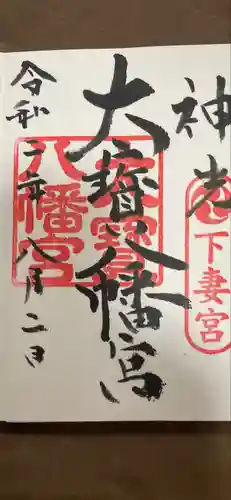 神光
下妻宮
大寳八幡宮
大寳八幡宮
令和年八月二日